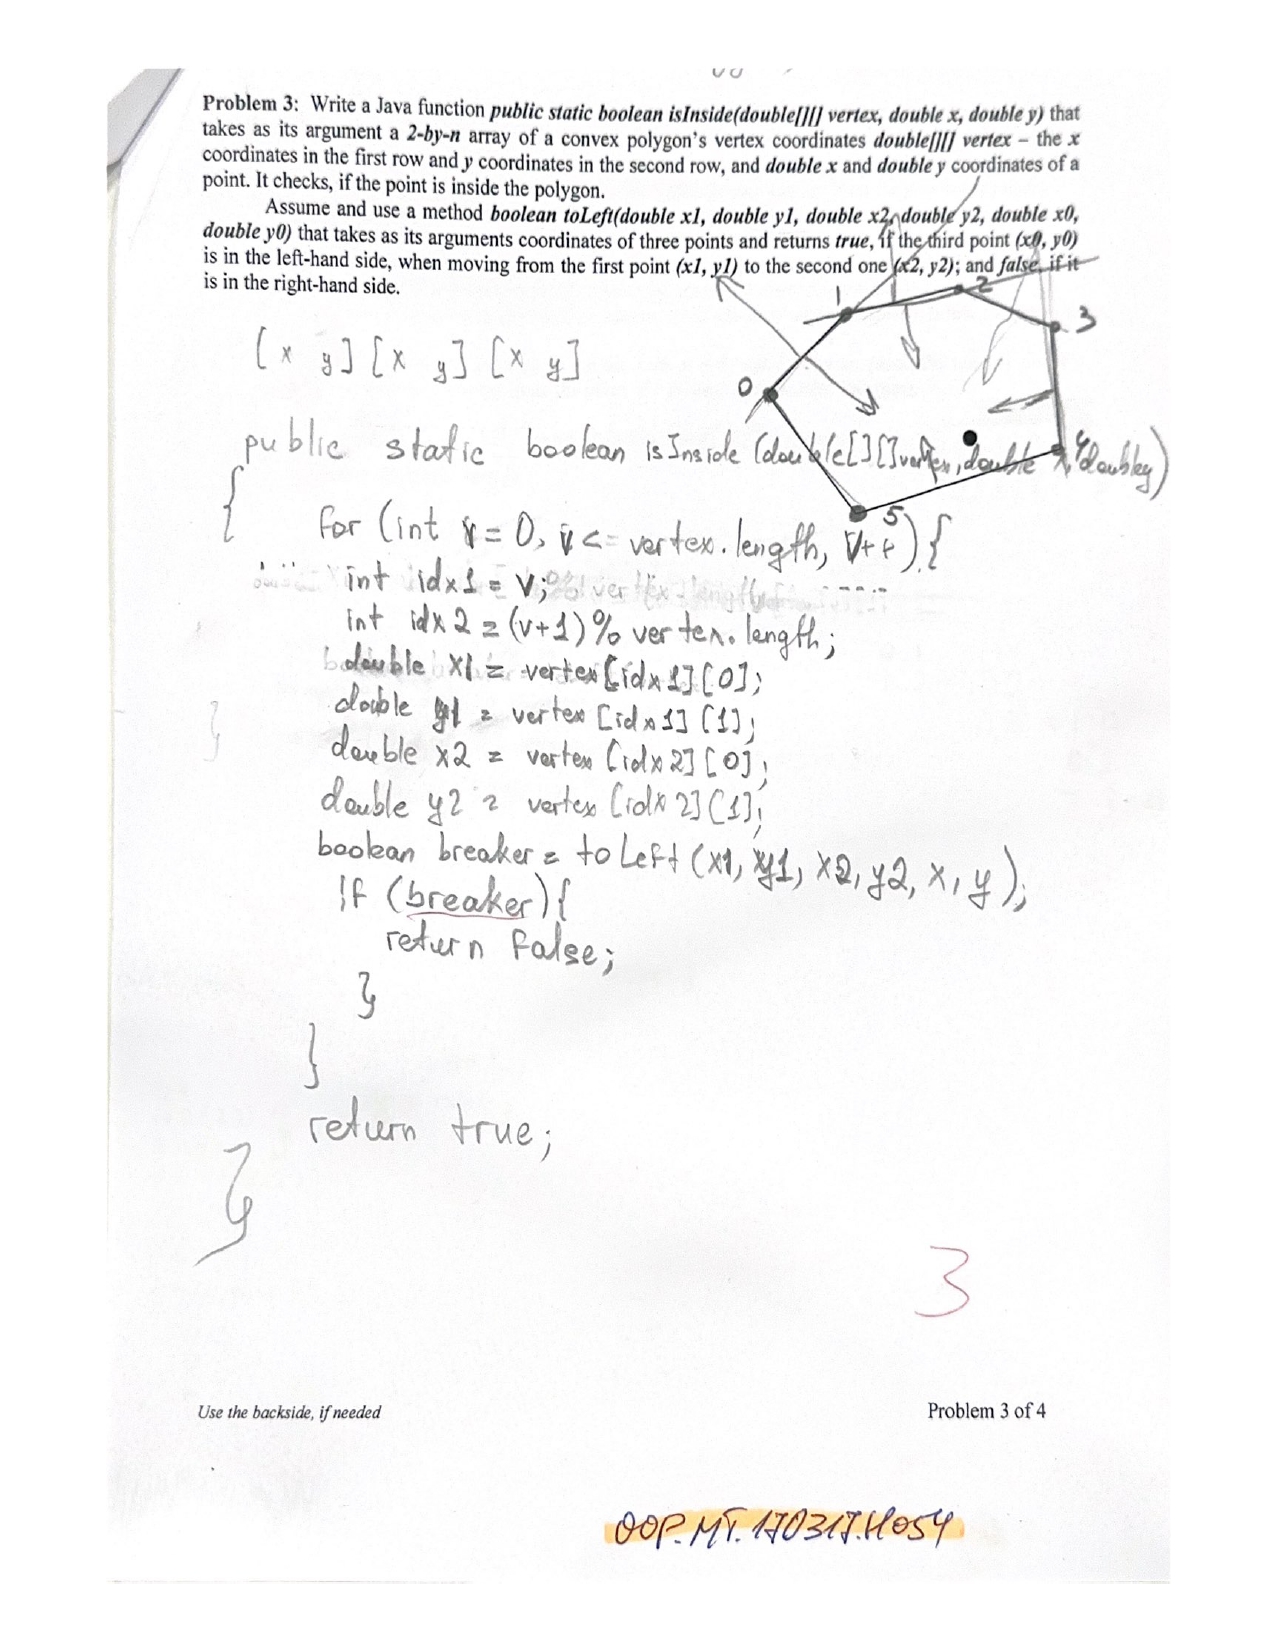 Problem 3: Write a Java function public static boolean isInside(double[][] vertex, double x, double y) that
takes as its argument a 2-by-n array of a convex polygon's vertex coordinates double[][] vertex – the x
coordinates in the first row and y coordinates in the second row, and double x and double y coordinates of a
point. It checks, if the point is inside the polygon.
Assume and use a method boolean toLeft(double x1, double y1, double x2, double y2, double x0,
double y0) that takes as its arguments coordinates of three points and returns true, if the third point (x0, y0)
is in the left-hand side, when moving from the first point (x1, y1) to the second one (x2, y2); and false, if it
is in the right-hand side.
1 2
3
[x y] [x y] [x y]
0
public static boolean isInside (double[][]vertex, double x, double y)
4
{
5
for (int v = 0, v <= vertex.length, v++) {
int idx1 = v;
int idx2 = (v+1) % vertex.length;
double x1 = vertex[idx1][0];
double y1 = vertex [idx1] [1];
}
double x2 = vertex [idx2] [0];
double y2 = vertex [idx2] [1];
boolean breaker = toLeft (x1, y1, x2, y2, x, y);
if (breaker) {
return false;
}
}
return true;
}
3
Use the backside, if needed
Problem 3 of 4
OOP.MT.170317.H054